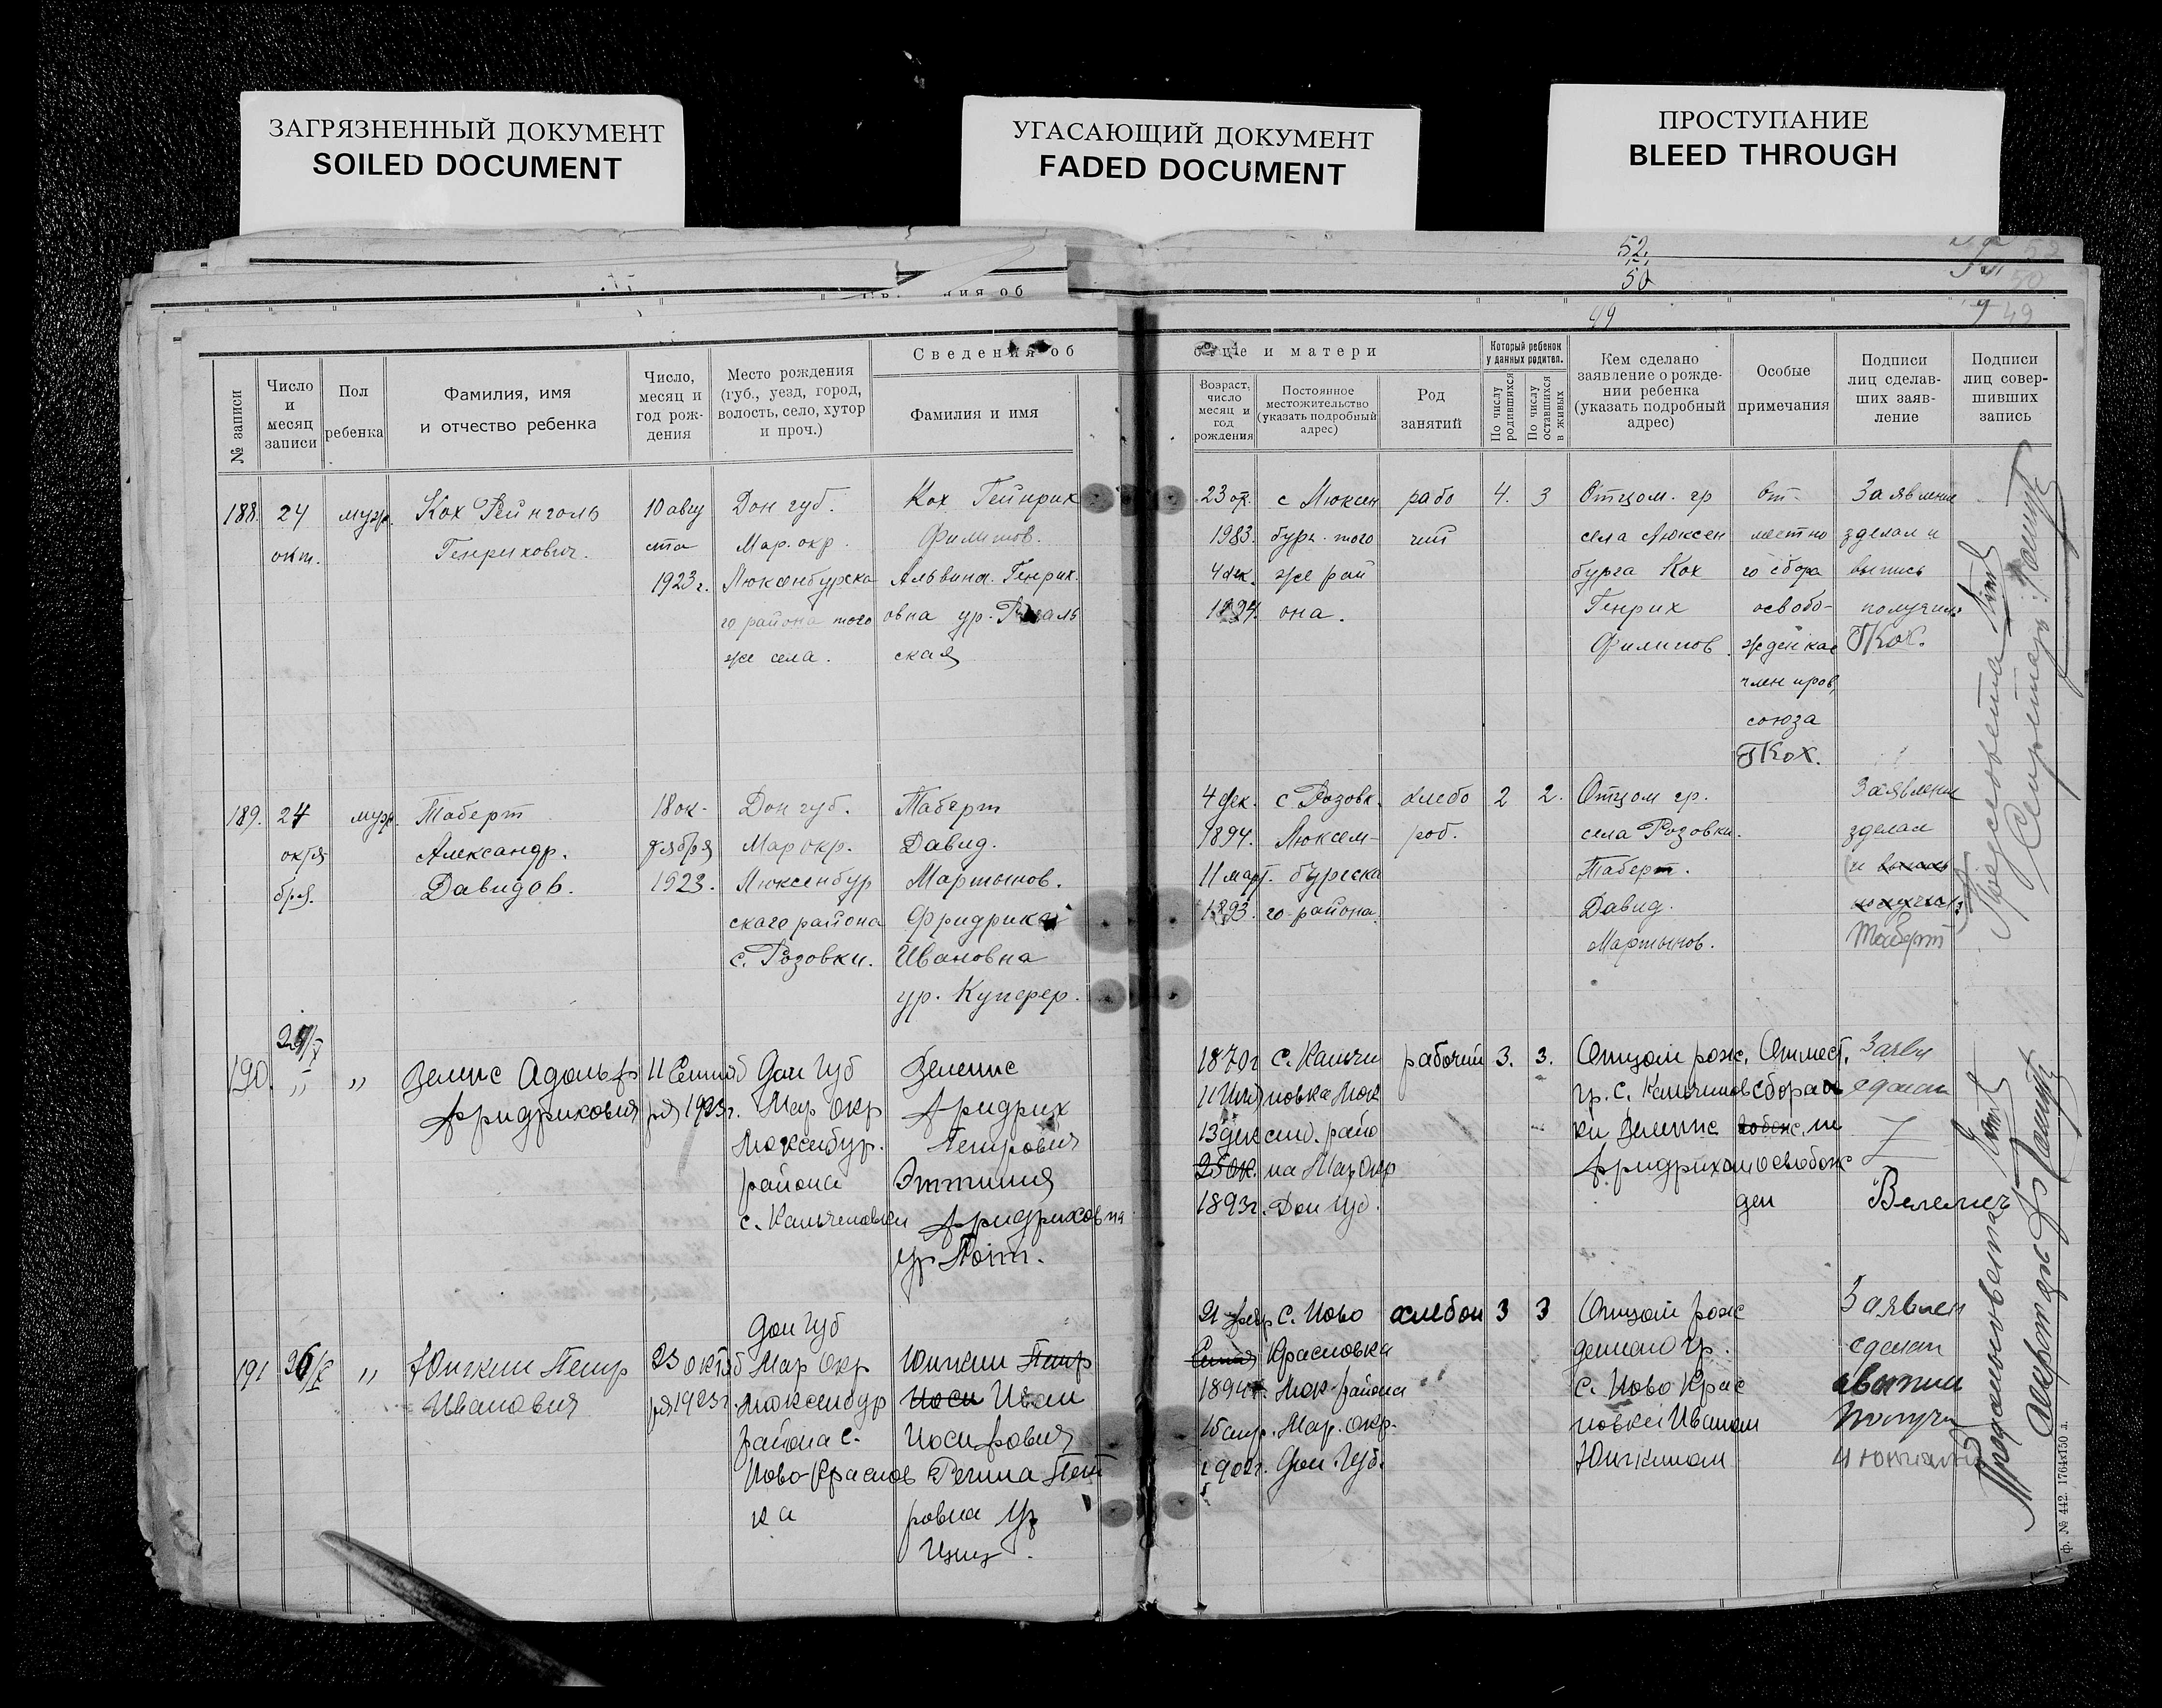 ЗАГРЯЗНЕННЫЙ ДОКУМЕНТ
SOILED DOCUMENT
УГАСАЮЩИЙ ДОКУМЕНТ
FADED DOCUMENT
ПРОСТУПАНИЕ
BLEED THROUGH
52
50
49
Сведения об отце и матери
№ записи
Число и месяц записи
Пол ребенка
Фамилия, имя и отчество ребенка
Число, месяц и год рождения
Место рождения (губ., уезд, город, волость, село, хутор и проч.)
Фамилия и имя
Возраст, число месяц и год рождения
Постоянное местожительство (указать подробный адрес)
Род занятий
Который ребенок у данных родител.
По числу родившихся
По числу оставшихся в живых
Кем сделано заявление о рождении ребенка (указать подробный адрес)
Особые примечания
Подписи лиц сделавших заявление
Подписи лиц совершивших запись
188.
24
окт.
муж.
Кох Рейнголь
Генрихович.
10 авгу
ста
1923 г.
Дон губ.
Мар. окр.
Люксенбурска
го района того
же села.
Кох Гейнрих
Филипов.
Альвина. Генрих.
овна ур.
ская
1983.
4 дек.
1894.
с Люксен
бург. того
же рай
она.
рабо
чий
4.
3
Отцом. гр
села Люксен
бурга Кох
Генрих
Филипов
От
местно
го сбора
освобо-
жден как
член проф
союза
ГКох.
Заявление
зделал и
выпись
получил
ГКох.
189.
24
октя
бря.
муж.
Таберт
Александр.
Давидов.
18 ок-
тября
1923.
Дон губ.
Мар окр.
Люксенбур
скаго района
с. Розовки.
Таберт
Давид.
Мартынов.
Фридрика
Ивановна
ур. Купфер.
4 дек.
1894.
11 март.
1893.
с Розовк.
Люксем-
бурска
го района.
хлебо
роб.
2
2.
Отцом гр.
села Розовки.
Таберт.
Давид.
Мартынов.
Заявление
зделал
и выпись
получил
Таберт
190.
"
"
Адольф
Фридрихович
11 Сентяб
ря 1923 г.
Дон Губ
Мар Окр
Люксенбур.
района
с. Кальчиновки
Фридрих
Петрович
Фридриховна
ур
1870 г
13 дек
25 ок.
1893 г.
с. Кальчи
новка Люк
сенб. райо
на Мар Окр
Дон Губ.
рабочий
3.
3.
Отцом рож.
гр. с. Кальчинов
ки
Фридрихом
От мест.
сбора
освобож
ден
Заяв
сделал
191
26/X
"
Юнгкин Петр
Иванович
23 октяб
ря 1923 г.
Дон Губ
Мар Окр
Люксенбур
района с.
Ново-Краснов
ка
Юнгкин Петр
Иоси Иван
Иосифович
Регина Пет
ровна Ур
21 февр
1894 г.
15 апр.
1902 г.
с. Ново
Красновка
Люк. района
Мар. Окр.
Дон. Губ.
хлебоп
3
3
Отцом рож
денного гр.
с. Ново Крас
новкеи Иваном
Юнгкиным
Заявлен
сделал
Получи
Председатель
Секретарь
ф. № 442. 1764х150 л.